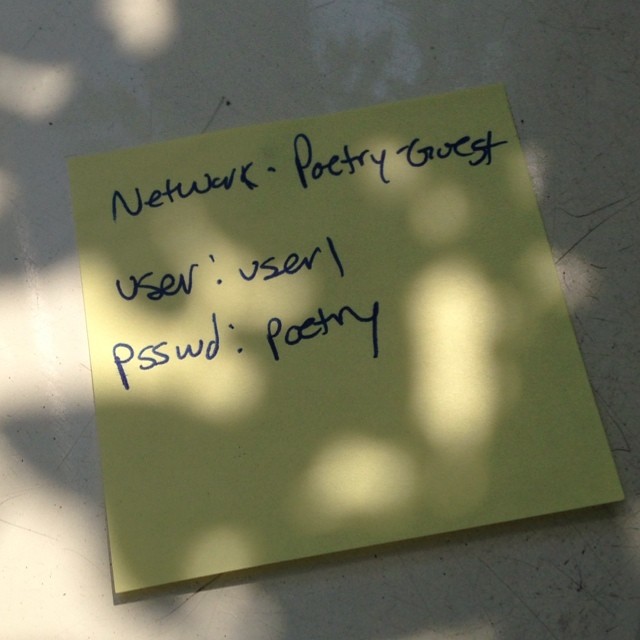 Network - Poetry-Guest
user: user1
psswd: poetry